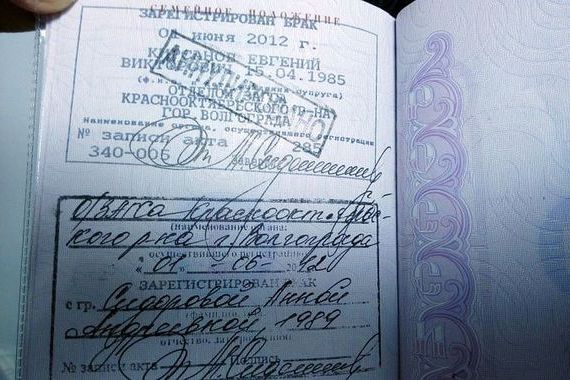 СЕМЕЙНОЕ ПОЛОЖЕНИЕ
ЗАРЕГИСТРИРОВАН БРАК
июня 2012 г.
ЕВГЕНИЙ
15.04.1985
ОТДЕЛ
КРАСНООКТЯБРЬСКОГО Р-НА
ГОР. ВОЛГОГРАДА
Наименование органа, осуществившего регистрацию
№ записи акта 285
340-006
ОЗАГСа Краснооктябрьс-
кого р-на г. Волгограда
(наименование органа,
осуществившего регистрацию)
" 01 " - 06 - 2012
ЗАРЕГИСТРИРОВАН БРАК
с гр. Сидоровой Анной
Андреевной, 1989
отчество, дата рождения
№ записи акта Подпись